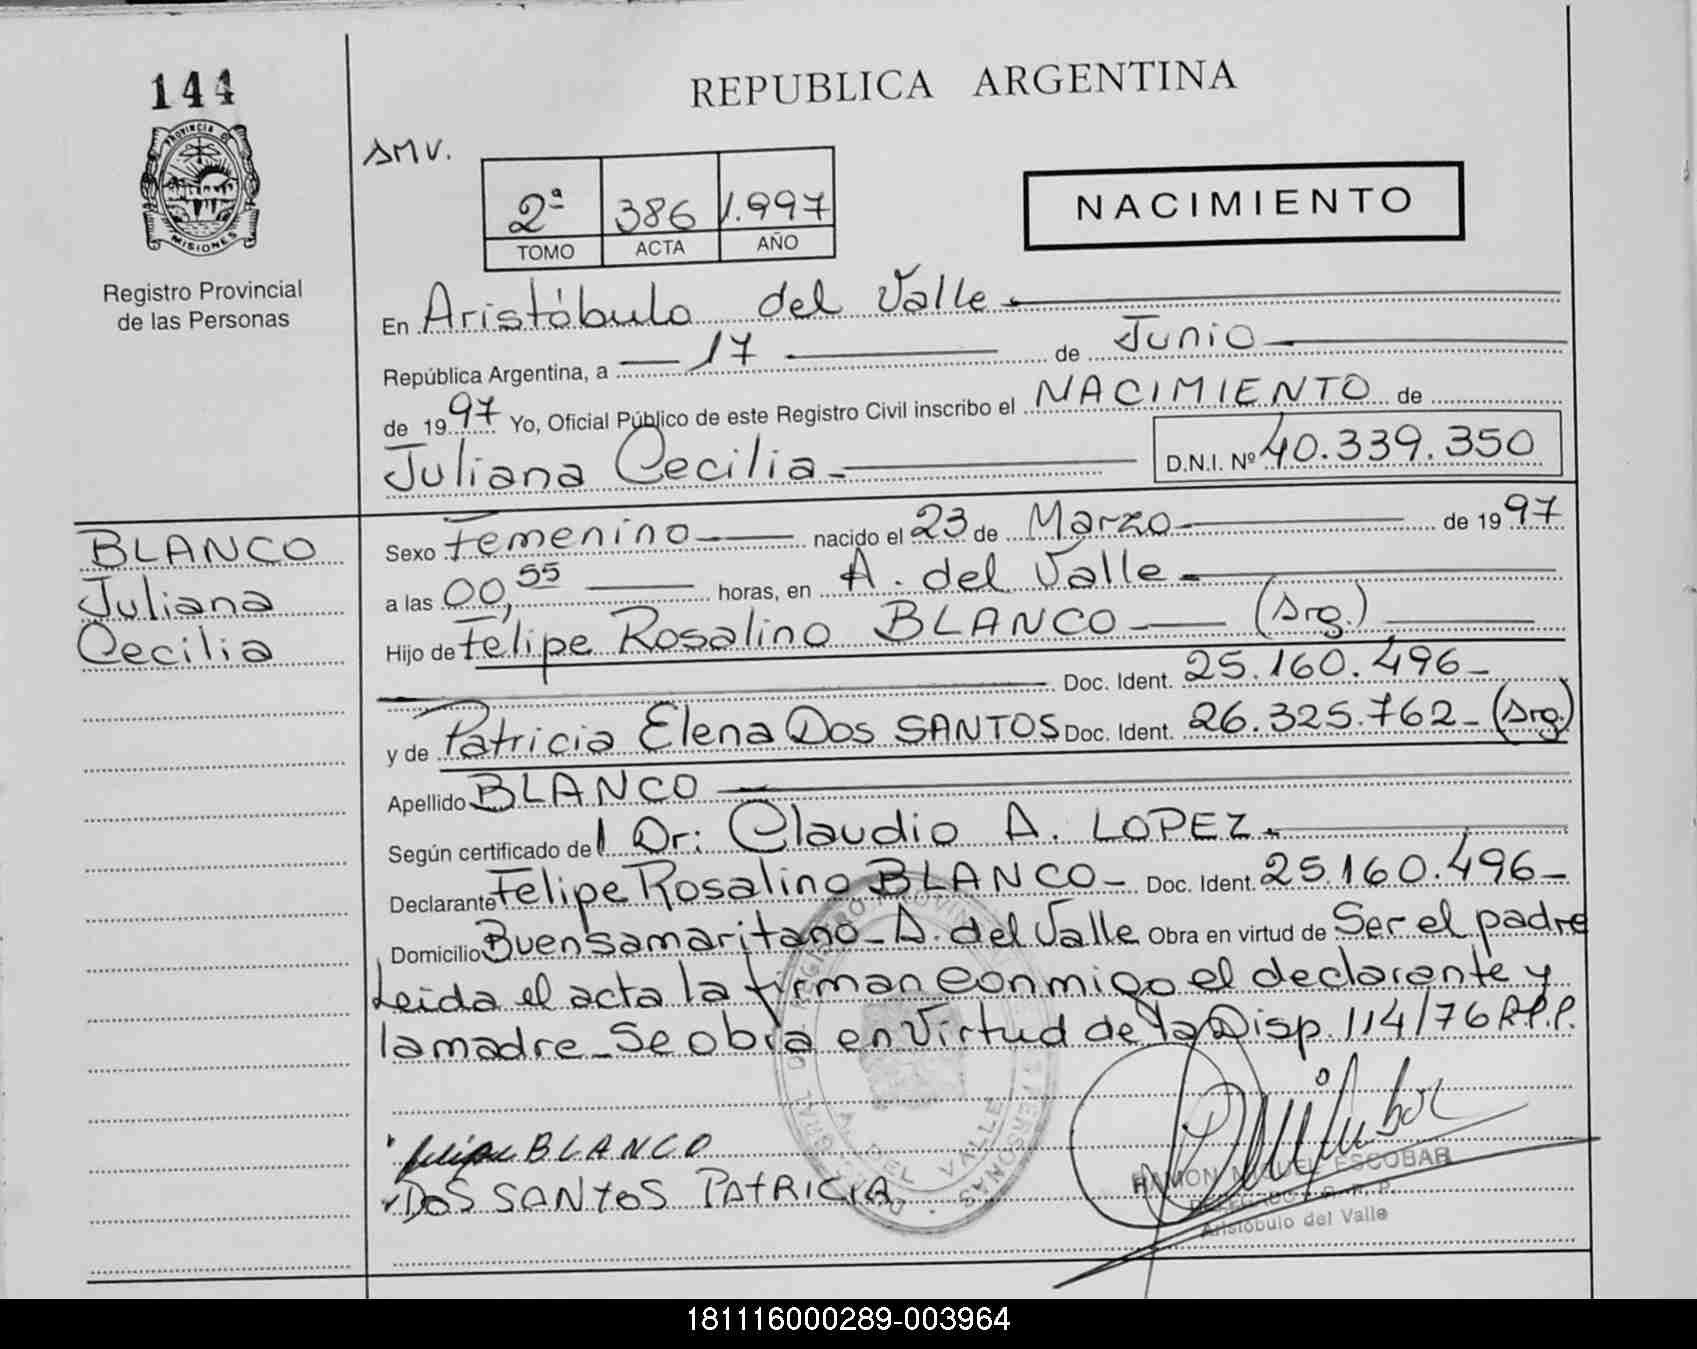 144
REPUBLICA ARGENTINA
PROVINCIA DE
MISIONES
Registro Provincial
de las Personas
SMV.
2ª 386 1.997
TOMO ACTA AÑO
NACIMIENTO
En Aristóbulo del Valle
República Argentina, a 17 de Junio
de 1997 Yo, Oficial Público de este Registro Civil inscribo el NACIMIENTO de
Juliana Cecilia D.N.I. Nº 40.339.350
BLANCO
Juliana
Cecilia
Sexo Femenino nacido el 23 de Marzo de 1997
a las 00,55 horas, en A. del Valle
Hijo de Felipe Rosalino BLANCO (Arg.)
Doc. Ident. 25.160.496
y de Patricia Elena Dos SANTOS Doc. Ident. 26.325.762 (Arg.)
Apellido BLANCO
Según certificado del Dr: Claudio A. LOPEZ
Declarante Felipe Rosalino BLANCO Doc. Ident. 25.160.496
Domicilio Buen samaritano - A. del Valle Obra en virtud de Ser el padre
Leida el acta la firman conmigo el declarante y
la madre - Se obra en Virtud de la Disp. 114/76 R.P.P.
Felipe BLANCO
DOS SANTOS PATRICIA
RAMON MIGUEL ESCOBAR
Aristóbulo del Valle
181116000289-003964